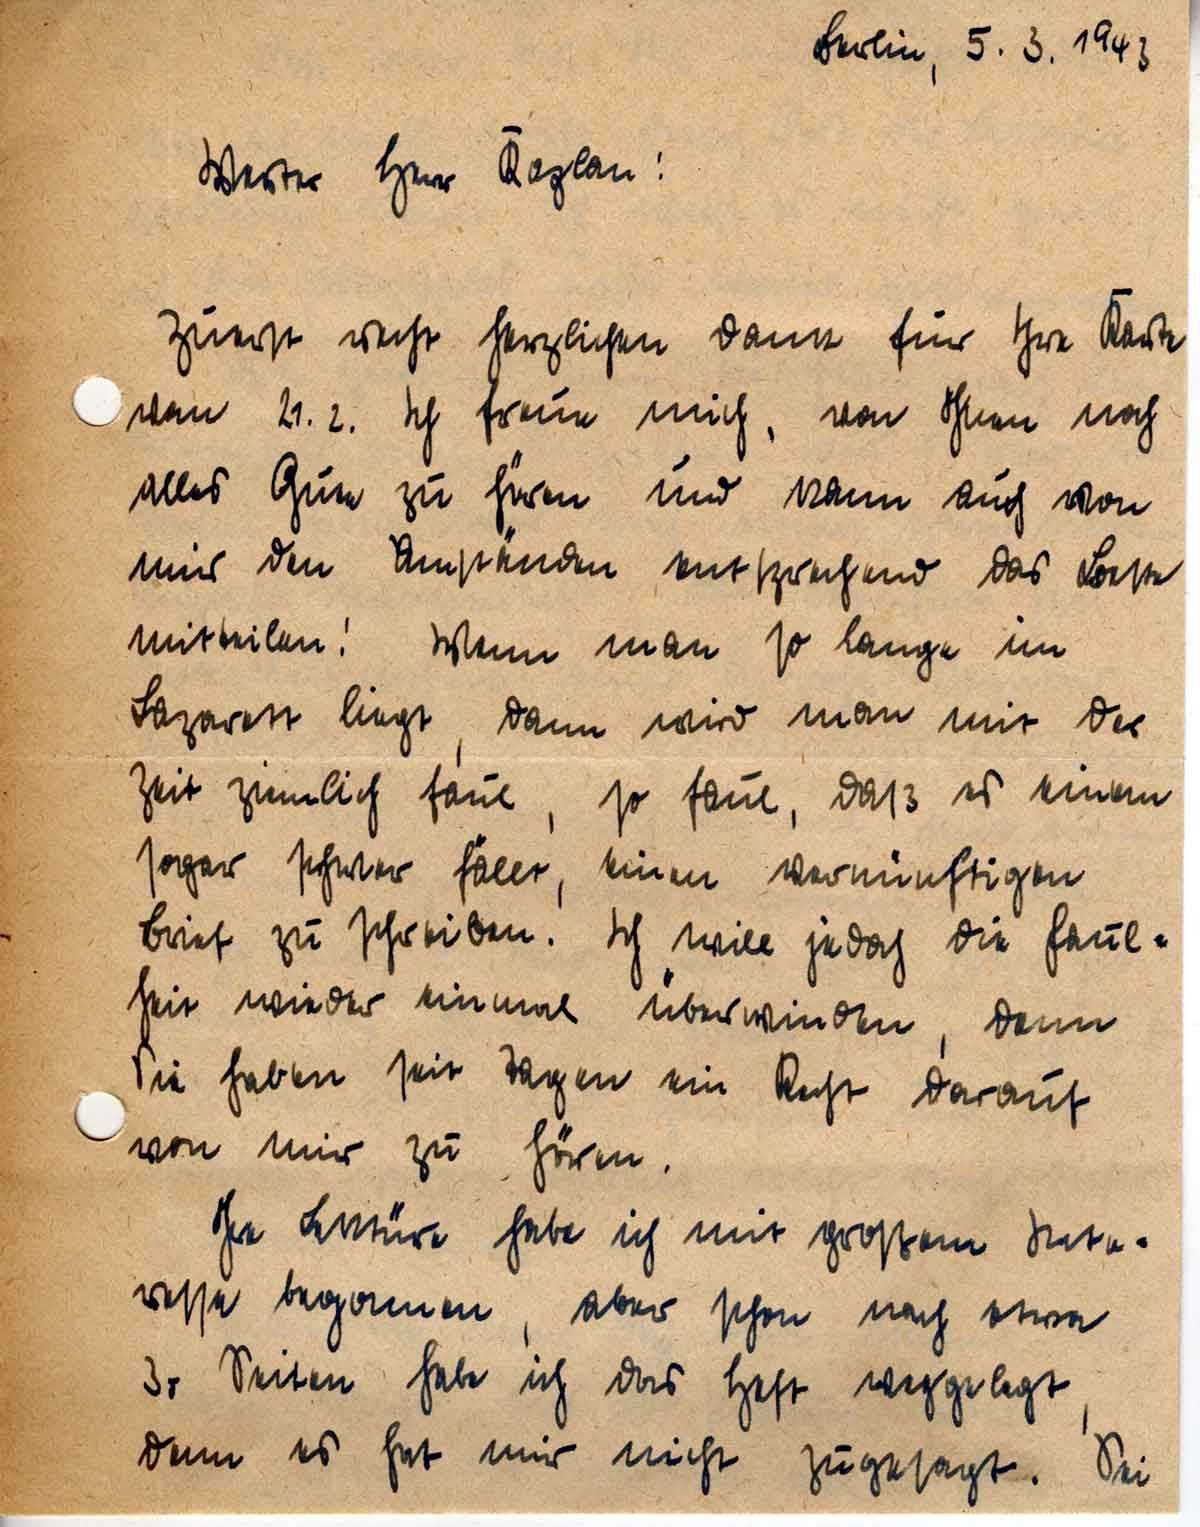 Berlin, 5. 3. 1943
Werter Herr Kaplan!
Zuerst recht herzlichen Dank für Ihre Karte
vom 21. 2. Ich freue mich, von Ihnen noch
alles Gute zu hören und kann auch von
mir den Umständen entsprechend das Beste
mitteilen! Wenn man so lange im
Lazarett liegt, dann wird man mit der
Zeit ziemlich faul, so faul, daß es einem
sogar schwer fällt, einen vernünftigen
Brief zu schreiben. Ich will jedoch die Faul-
heit wieder einmal überwinden, denn
Sie haben seit Tagen ein Recht darauf
von mir zu hören.
Ihre Lektüre habe ich mit großem Inte-
resse begonnen, aber schon nach etwa
30 Seiten habe ich das Heft weggelegt,
denn es hat mir nicht zugesagt. Sei